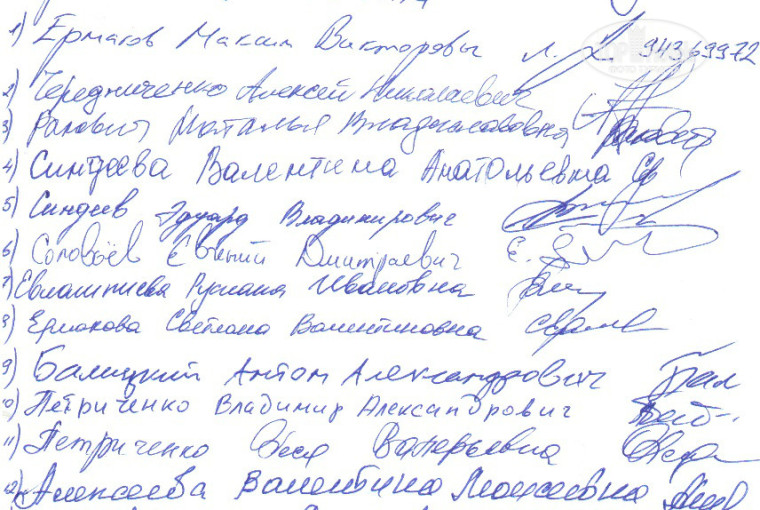 1) Ермаков Максим Викторовы 94369972
2) Чередниченко Алексей Николаевич
3) Ракович Наталья Владиславовна
4) Синдеева Валентина Анатольевна
5) Синдеев Эдуард Владимирович
6) Соловьёв Евгений Дмитриевич
7) Евлампиева Руслана Ивановна
8) Ермакова Светлана Валентиновна
9) Балицкий Антон Александрович
10) Петриченко Владимир Александрович
11) Петриченко Валерьевна
12) Алексеева Валентина Моисеевна